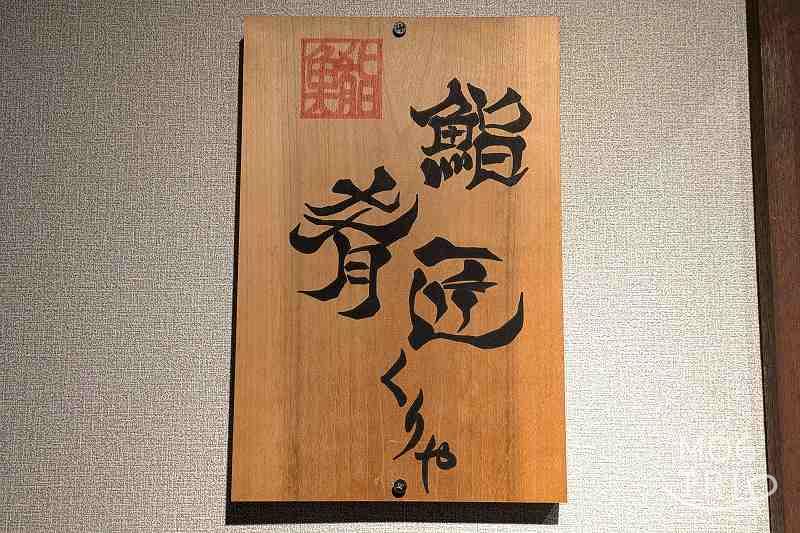 鮨
肴
匠
くりや
鮨
MOG
TRIP